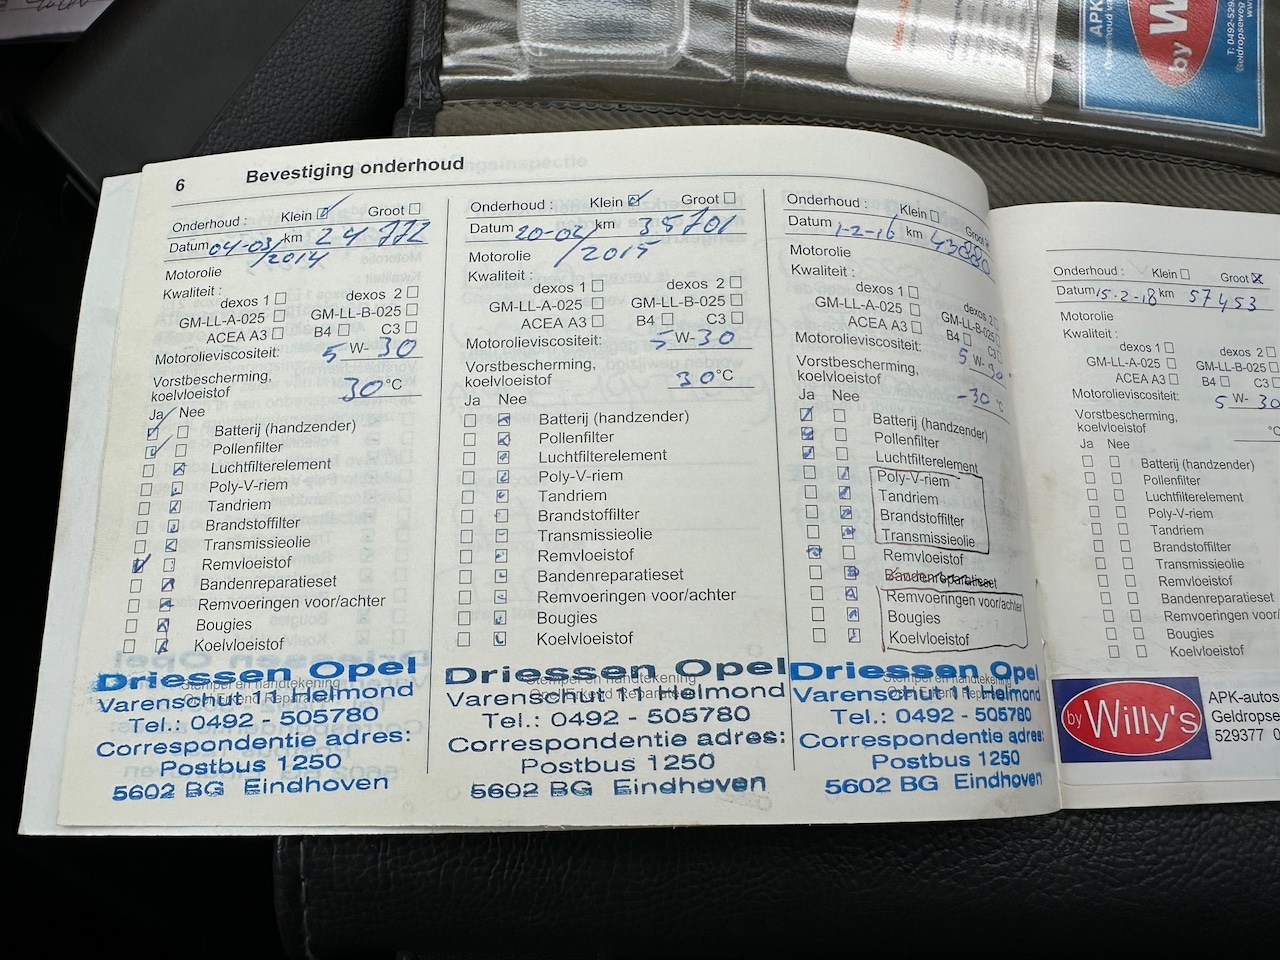 6 Bevestiging onderhoud
Onderhoud : Klein Groot
Datum 04-03/2014 km 24 772
Motorolie
Kwaliteit :
dexos 1 dexos 2
GM-LL-A-025 GM-LL-B-025
ACEA A3 B4 C3
Motorolieviscositeit: 5 W- 30
Vorstbescherming,
koelvloeistof 30 °C
Ja Nee
Batterij (handzender)
Pollenfilter
Luchtfilterelement
Poly-V-riem
Tandriem
Brandstoffilter
Transmissieolie
Remvloeistof
Bandenreparatieset
Remvoeringen voor/achter
Bougies
Koelvloeistof
Stempel en handtekening
Driessen Opel
Varenschut 11 Helmond
Tel.: 0492 - 505780
Correspondentie adres:
Postbus 1250
5602 BG Eindhoven
Onderhoud : Klein Groot
Datum 20-02/2015 km 35701
Motorolie
Kwaliteit :
dexos 1 dexos 2
GM-LL-A-025 GM-LL-B-025
ACEA A3 B4 C3
Motorolieviscositeit: 5 W-30
Vorstbescherming,
koelvloeistof 30 °C
Ja Nee
Batterij (handzender)
Pollenfilter
Luchtfilterelement
Poly-V-riem
Tandriem
Brandstoffilter
Transmissieolie
Remvloeistof
Bandenreparatieset
Remvoeringen voor/achter
Bougies
Koelvloeistof
Stempel en handtekening
Driessen Opel
Varenschut 11 Helmond
Tel.: 0492 - 505780
Correspondentie adres:
Postbus 1250
5602 BG Eindhoven
Onderhoud : Klein Groot
Datum 1-2-16 km
Motorolie
Kwaliteit :
dexos 1 dexos 2
GM-LL-A-025 GM-LL-B-025
ACEA A3 B4 C3
Motorolieviscositeit: 5 W-30
Vorstbescherming,
koelvloeistof -30 °C
Ja Nee
Batterij (handzender)
Pollenfilter
Luchtfilterelement
Poly-V-riem
Tandriem
Brandstoffilter
Transmissieolie
Remvloeistof
Bandenreparatieset
Remvoeringen voor/achter
Bougies
Koelvloeistof
Stempel en handtekening
Driessen Opel
Varenschut 11 Helmond
Tel.: 0492 - 505780
Correspondentie adres:
Postbus 1250
5602 BG Eindhoven
Onderhoud : Klein Groot
Datum 15-2-18 km 57453
Motorolie
Kwaliteit :
dexos 1 dexos 2
GM-LL-A-025 GM-LL-B-025
ACEA A3 B4 C3
Motorolieviscositeit: 5 W- 30
Vorstbescherming,
koelvloeistof °C
Ja Nee
Batterij (handzender)
Pollenfilter
Luchtfilterelement
Poly-V-riem
Tandriem
Brandstoffilter
Transmissieolie
Remvloeistof
Bandenreparatieset
Remvoeringen voor/
Bougies
Koelvloeistof
by Willy's
APK-autos
Geldropse
529377
APK
by W
T: 0492-529
Geldropseweg